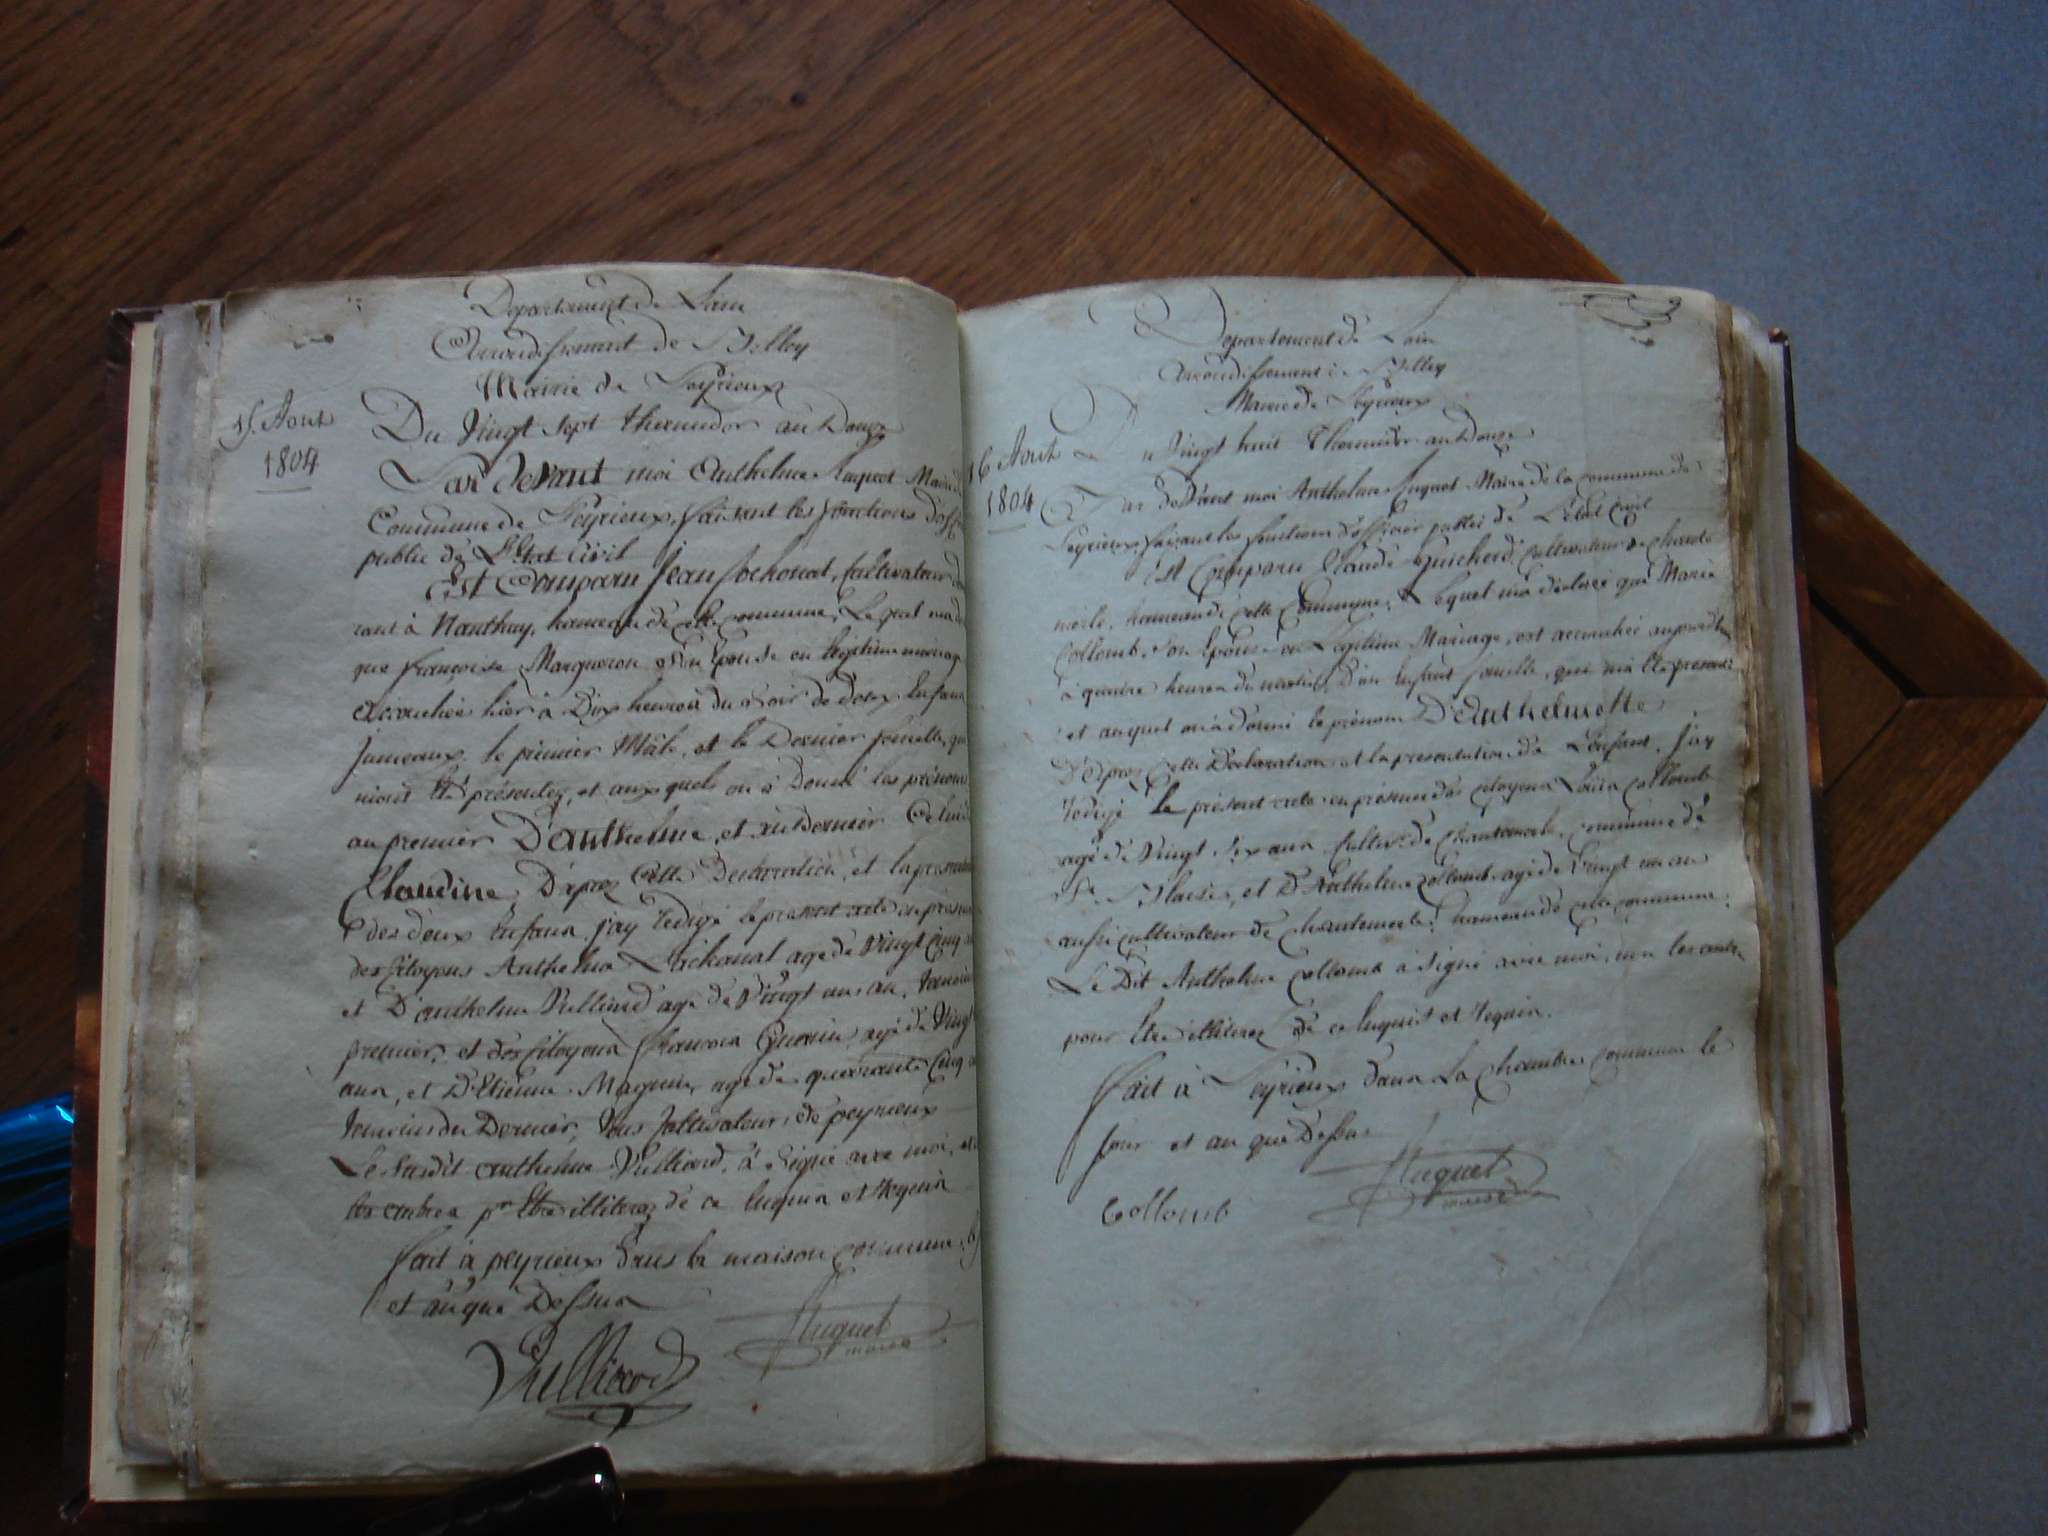 Departement de Lain
Arrondissement de Belley
Mairie de Peyrieux
15. Aout
1804
Du Vingt sept thermidor an Douze
Par devant moi Anthelme huguet Maire de
Commune de Peyrieux, faisant les fonctions d'offi
public de L'Etat Civil
Est Comparu Jean cultivateur
rant à Nanthuy, hameau de cette commune, Lequel ma de
que francoise Margueron Son Epouse en légitime mariage
accouchée hier à Dix heures du Soir de deux Enfans
Jumeaux, le premier Mâle, et le Dernier femelle, qui
mont Eté présentés, et auxquels on a Donné les prénoms
au premier D'anthelme, et au Dernier Celui de
Claudine, D'apres Cette Declaration, et la présentation
des deux Enfans j'ay redigé le present acte en présence
des citoyens Anthelme agé de Vingt Cinq
et D'anthelme Vulliard agé de Vingt un an, temoins
premier, et des Citoyens francois agé de Vingt
ans, et D'Etienne Magnin, agé de quarante Cinq
temoins du Dernier, tous Cultivateurs de peyrieux
Le Susdit anthelme Vulliard, à Signé avec moi,
les autres pr Etre illiteres de ce Enquis et Requis
fait à peyrieux dans la maison commune,
et an que Dessus
Vulliard
Huguet
maire
Departement de Lain
Arrondissement de Belley
Mairie de Peyrieux
16 Aout
1804
Du Vingt huit Thermidor an Douze
Par Devant moi Anthelme huguet Maire de la commune de
Peyrieux faisant les fonctions d'officier public de L'Etat Civil
Est Comparu Claude Guicherd Cultivateur de Chante
merle, hameau de cette Commune, Lequel m'a déclaré que Marie
Collomb, Son Epouse en Légitime Mariage, est accouchée aujourdhui
à quatre heures du matin, d'un Enfant femelle, qui m'a Eté présenté
et auquel on a donné le prénom D'Anthelmette
D'apres Cette Declaration et la presentation de L'enfant, J'ay
redigé le présent acte en présence des citoyens Collomb
agé de Vingt Six ans Cultivr de Chantemerle, commune de
et D'Anthelme Collomb agé de Vingt un an
aussi cultivateur de Chantemerle, hameau de cette commune,
Le Dit Anthelme Collomb à Signé avec moi, non les autres
pour Etre illiteres de ce Enquis et Requis.
fait à Peyrieux dans La Chambre commune le
Jour et an que Dessus
Huguet
maire
Collomb